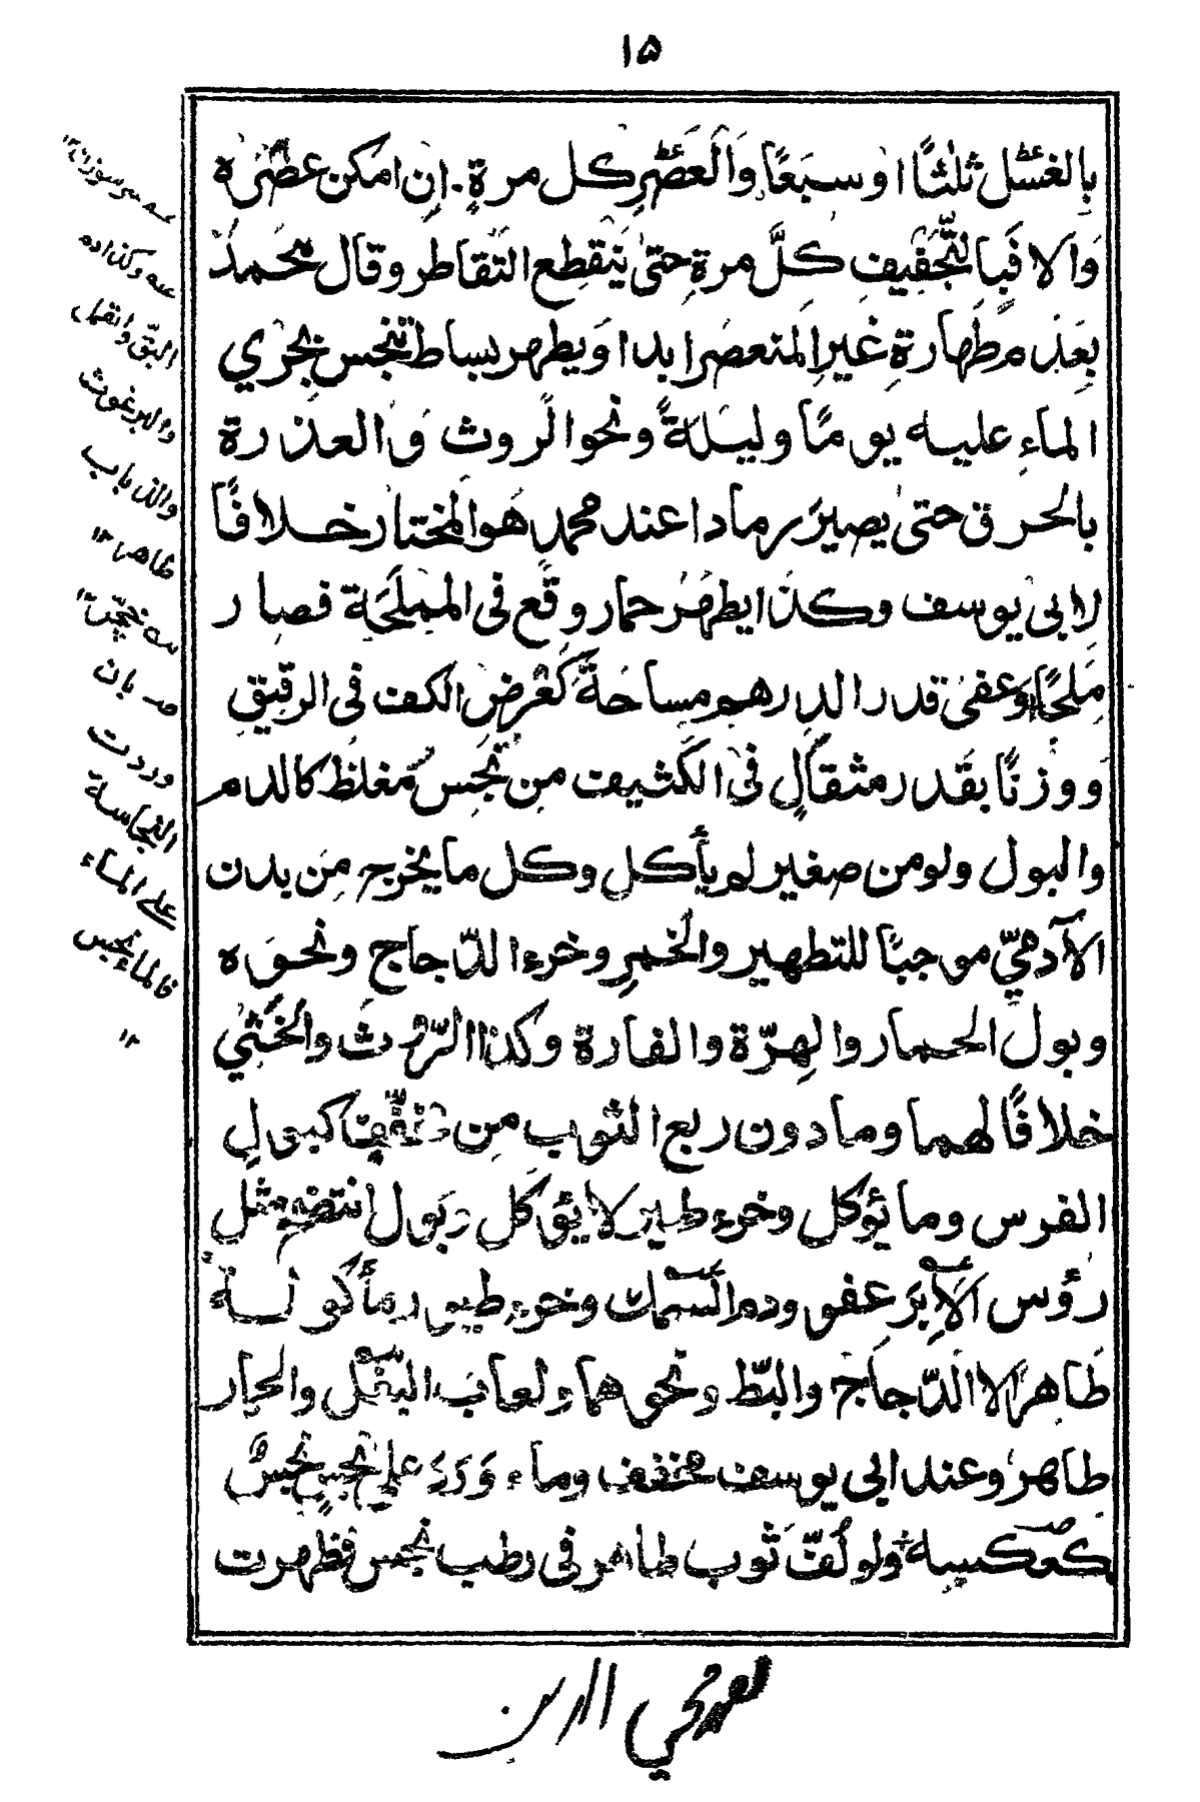 ١٥
بالغَسْل ثلثًا او سبعًا وَالعَصْرِ كل مرةٍ ان امكن عصْرُه
وَالا فبالتَّجْفِيفِ كلَّ مرةٍ حتى يَنقطِع التقاطر وقال محَمدٌ
بعَدَم طَهارةِ غيرِ المنعصر ابدا وَيطهر بساط تنجس بجَرْي
الماءِ عليه يومًا وليلةً ونحو الروث وَالعذرة
بالحرق حتى يصيرَ رمادا عند محمدٍ هَو المختار خلافًا
لابي يوسف وكذا يطهُرُ حمار وقَع فى المملَحَة فصار
مِلحًا وَعفى قدر الدرهم مِساحَةً كَعَرْضِ الكف فى الرقيقِ
ووزنًا بقَدر مثقالٍ فى الكَثيف مِن نَجَسٍ مُغلظ كالدم
والبول ولومن صغير لم يأكل وكل ما يخرج مِن بدن
الآدميّ موجبًا للتطهير والخمرِ وخرء الدّجاج ونحوَه
وبول الحمار والهِرّة والفارة وكذا الرّوثَ والخَثْي
خلافًا لهما وما دون ربع الثوب مِن مُخَفّفٍ كبولِ
الفرس وما يؤكل وخرء طير لا يؤكَل وَبول انتضح مثل
رؤس الاِبَر عفو ودم السّمك وخرء طيور مأكولة
طَاهر الا الدّجاج والبَطّ ونحوهما ولعابُ البَغْل والحمار
طاهرٌ وعند ابى يوسف مخفف وماء وَرَدَ على نجِسٍ نجسٌ
كعكسه ولو لُفّ ثوب طاهر فى رطب نجس فظهرت
عه وكذا دم
البَقّ والقمل
والبرغوث
والذباب
طاهر ١٢
صه بان
وردت
النجاسة
على الماء
فالماء نجس
١٢
محي الدين